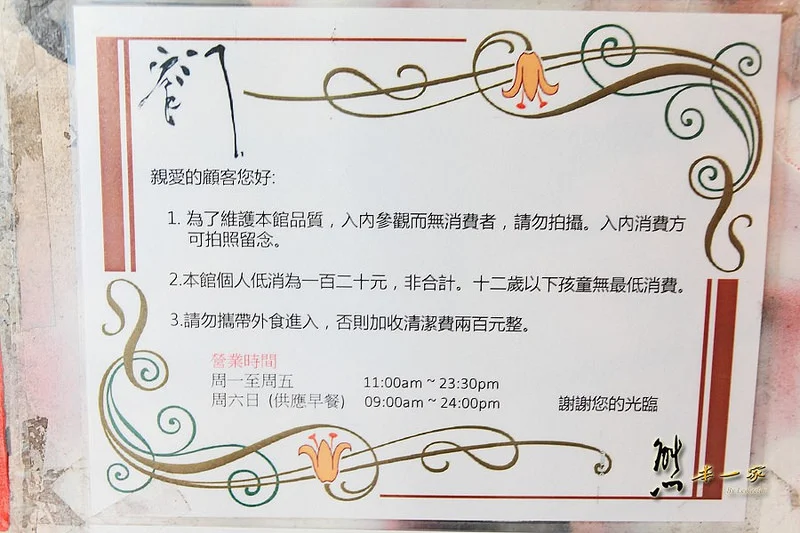 親愛的顧客您好:
1. 為了維護本館品質，入內參觀而無消費者，請勿拍攝。入內消費方
可拍照留念。
2.本館個人低消為一百二十元，非合計。十二歲以下孩童無最低消費。
3.請勿攜帶外食進入，否則加收清潔費兩百元整。
營業時間
周一至周五 11:00am ~ 23:30pm
周六日 (供應早餐) 09:00am ~ 24:00pm
謝謝您的光臨
熊本一家